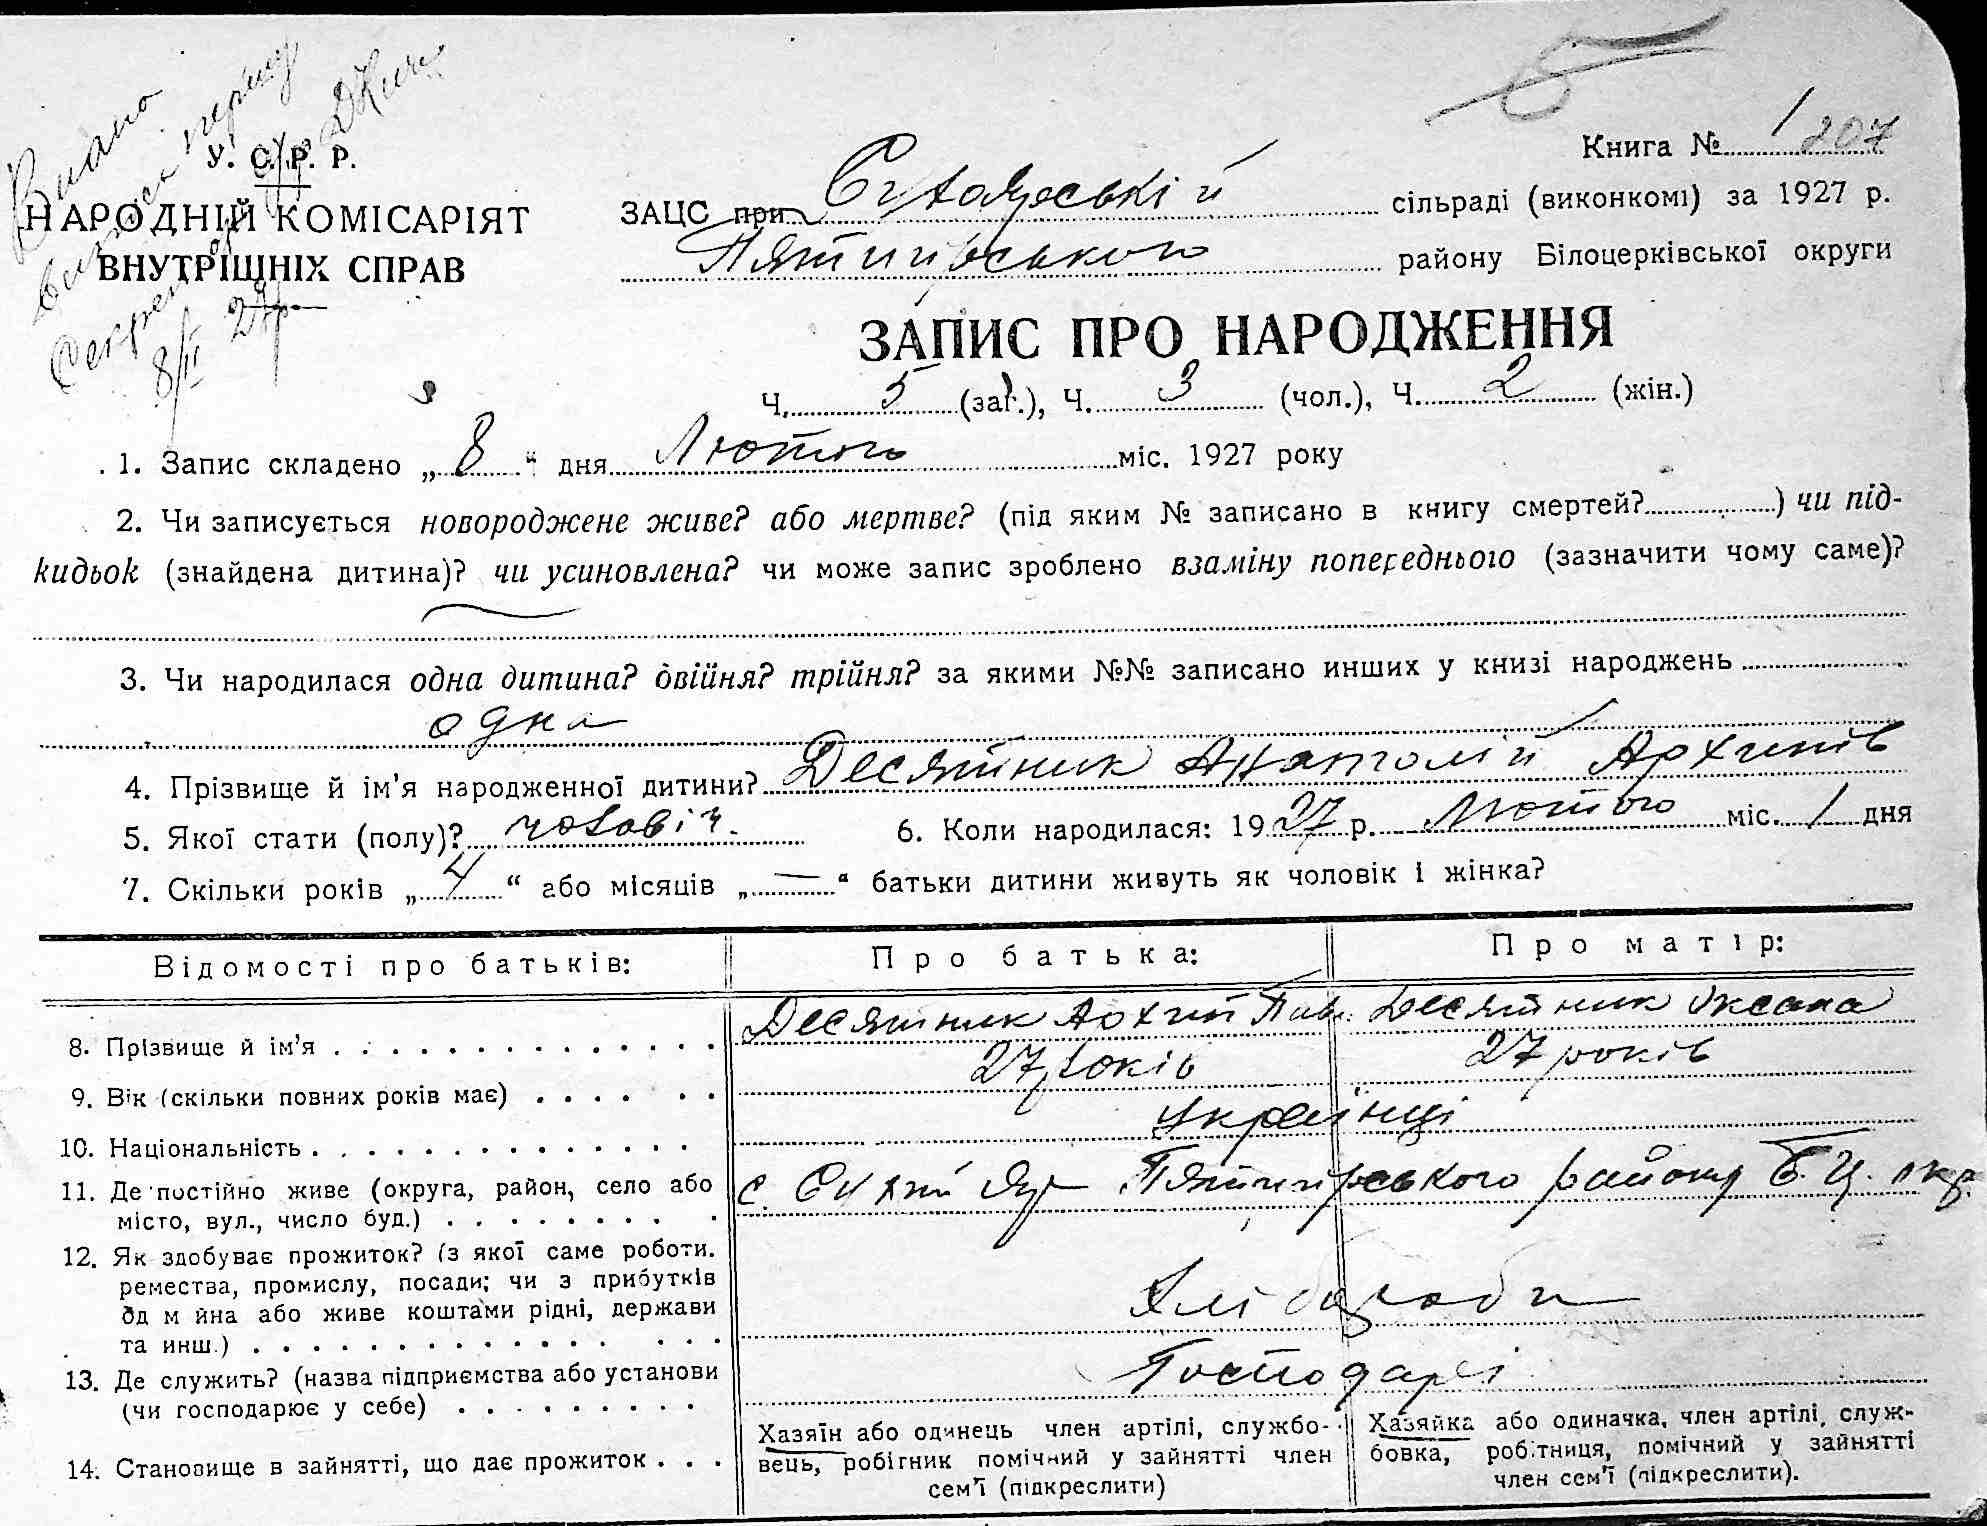 Видано
виписі першу
Секретар
8/II 27р.
У. С. Р. Р.
НАРОДНІЙ КОМІСАРІЯТ
ВНУТРІШНІХ СПРАВ
Книга № 1 207
ЗАЦС при сільраді (виконкомі) за 1927 р.
Пятигірського району Білоцерківської округи
ЗАПИС ПРО НАРОДЖЕННЯ
Ч. 5 (заг.), Ч. 3 (чол.), Ч. 2 (жін.)
1. Запис складено „ 8 “ дня Лютого міс. 1927 року
2. Чи записується новороджене живе? або мертве? (під яким № записано в книгу смертей? ) чи під-
кидьок (знайдена дитина)? чи усиновлена? чи може запис зроблено взаміну попереднього (зазначити чому саме)?
3. Чи народилася одна дитина? двійня? трійня? за якими №№ записано инших у книзі народжень
одна
4. Прізвище й ім’я народженної дитини? Десятник Анатолій Архипів
5. Якої стати (полу)? чоловіч. 6. Коли народилася: 1927 р. Лютого міс. 1 дня
7. Скільки років „ 4 “ або місяців „ — “ батьки дитини живуть як чоловік і жінка?
Відомості про батьків: Про батька: Про матір:
8. Прізвище й ім’я Десятник Архип Пав. Десятник Оксана
9. Вік (скільки повних років має) 27 років 27 років
10. Національність українці
11. Де постійно живе (округа, район, село або
місто, вул., число буд.) с. Пятигірського району Б.Ц. окр.
12. Як здобуває прожиток? (з якої саме роботи.
ремества, промислу, посади; чи з прибутків
од м йна або живе коштами рідні, держави
та инш.) Хлібороби
13. Де служить? (назва підприємства або установи
(чи господарює у себе) Господарі
14. Становище в зайнятті, що дає прожиток
Хазяїн або одинець член артілі, службо-
вець, робігник помічний у зайнятті член
сем’ї (підкреслити)
Хазяйка або одиначка, член артілі, служ-
бовка, робітниця, помічний у зайнятті
член сем’ї (підкреслити).